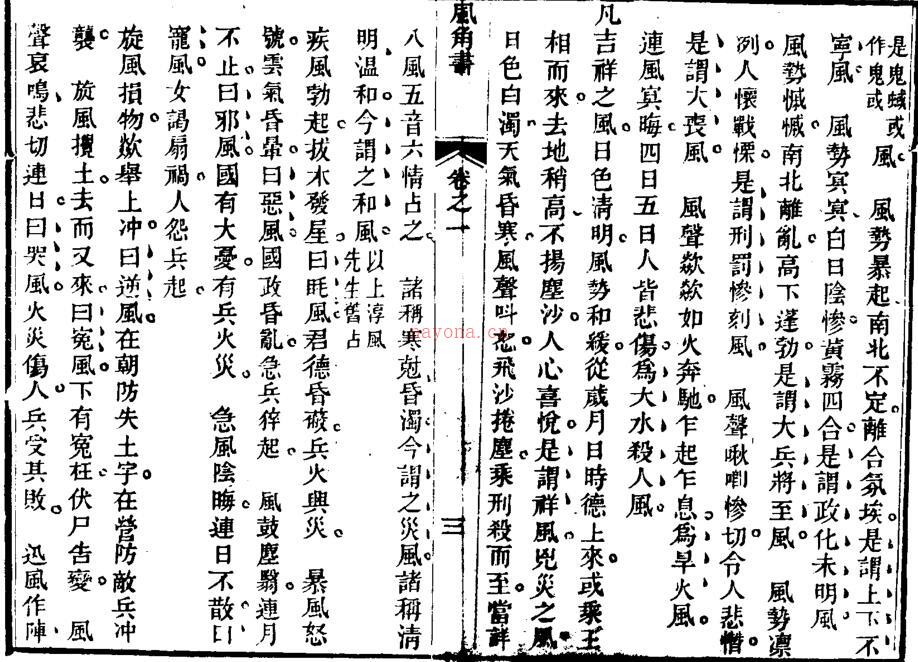 是鬼蜮或
作鬼或 風　風勢暴起南北不定離合氛埃是謂上下不
寧風　風勢寞寞白日陰慘黃霧四合是謂政化未明風
風勢慽慽南北離亂高下蓬勃是謂大兵將至風　風勢凛
冽人懷戰慄是謂刑罰慘刻風　風聲啾喞慘切令人悲憯
是謂大喪風　風聲歘歘如火奔馳乍起乍息為旱火風
連風寞晦四日五日人皆悲傷為大水殺人風
凡吉祥之風日色淸明風勢和緩從歲月日時德上來或乘王
相而來去地稍高不揚塵沙人心喜悅是謂祥風兇災之風
日色白濁天氣昏寒風聲叫怒飛沙捲塵乘刑殺而至當詳
風角書
卷之一
三
八風五音六情占之　諸稱寒尅昏濁今謂之災風諸稱清
明温和今謂之和風 以上淳風
先生舊占
疾風勃起拔木發屋曰眊風君德昏礙兵火興災　暴風怒
號雲氣昏暈曰惡風國政昏亂急兵猝起　風鼓塵翳連月
不止曰邪風國有大憂有兵火災　急風陰晦連日不散曰
寵風女謁扇禍人怨兵起
旋風損物歘舉上冲曰逆風在朝防失土字在營防敵兵冲
襲　旋風攪土去而又來曰寃風下有寃枉伏尸告變　風
聲哀鳴悲切連日曰哭風火災傷人兵受其敗　迅風作陣
nayona.cn